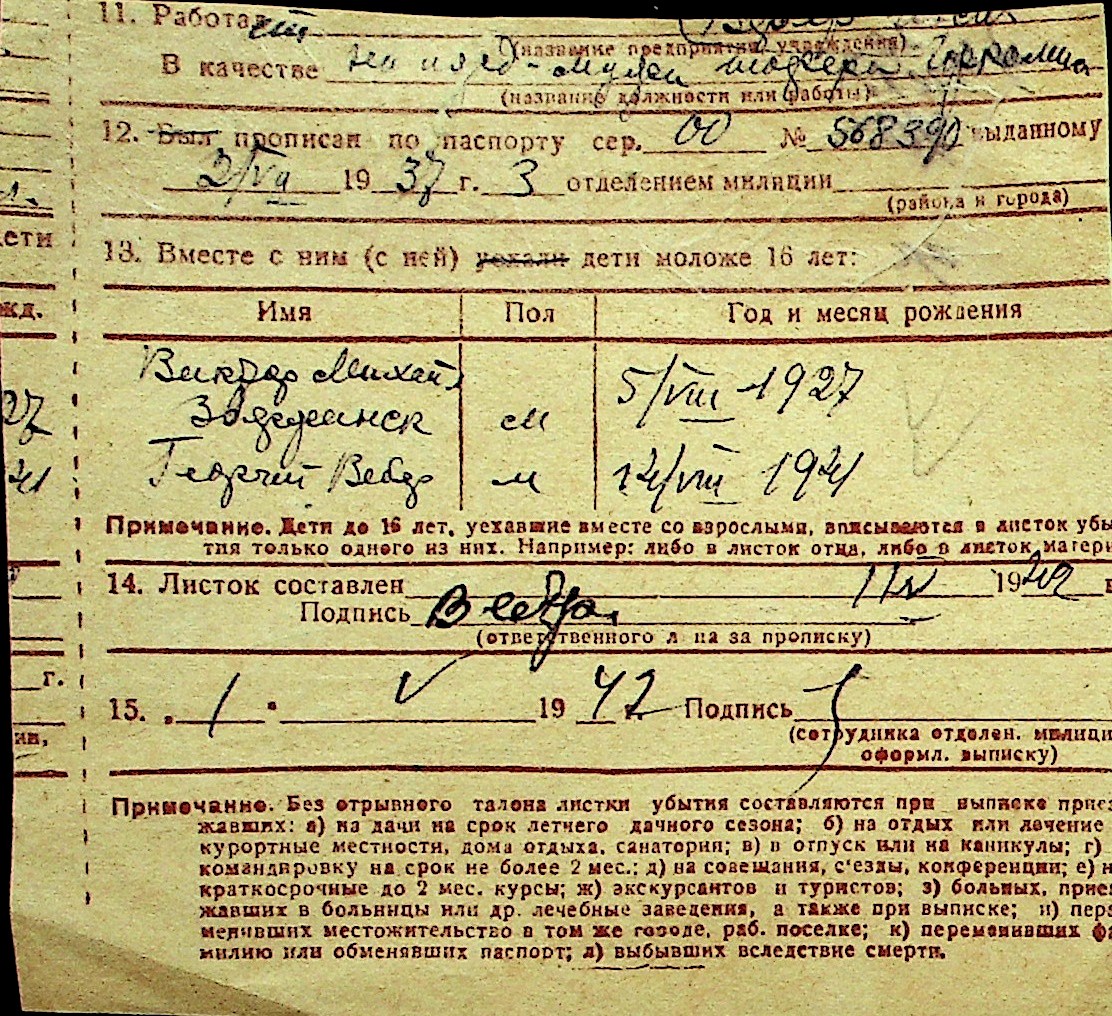 11. Работает
(название предприятия, учреждения)
В качестве
(название должности или работы)
12. Был прописан по паспорту сер. 00 № 568390 выданному
2/VII 1937 г. 3 отделением милиции
(района и города)
ети
13. Вместе с ним (с ней) уехали дети моложе 16 лет:
жд. Имя Пол Год и месяц рождения
Виктор Михайл 5/VIII 1927
27 м
41 Георгий м 14/VIII 1941
Примечание. Дети до 16 лет, уехавшие вместе со взрослыми, вписываются в листок убы
тия только одного из них. Например: либо в листок отца, либо в листок матери
14. Листок составлен 1942
Подпись
(ответственного л ца за прописку)
г.
15. „ 1 " V 1942 Подпись
ии, (сотрудника отделен. милици
оформл. выписку)
Примечание. Без отрывного талона листки убытия составляются при выписке приез
жавших: а) на дачи на срок летнего дачного сезона; б) на отдых или лечение
курортные местности, дома отдыха, санатории; в) в отпуск или на каникулы; г)
командировку на срок не более 2 мес.; д) на совещания, с'езды, конференции; е) н
краткосрочные до 2 мес. курсы; ж) экскурсантов и туристов; з) больных, приез
жавших в больницы или др. лечебные заведения, а также при выписке; и) пере
менивших местожительство в том же городе, раб. поселке; к) переменивших фа
милию или обменявших паспорт; л) выбывших вследствие смерти.